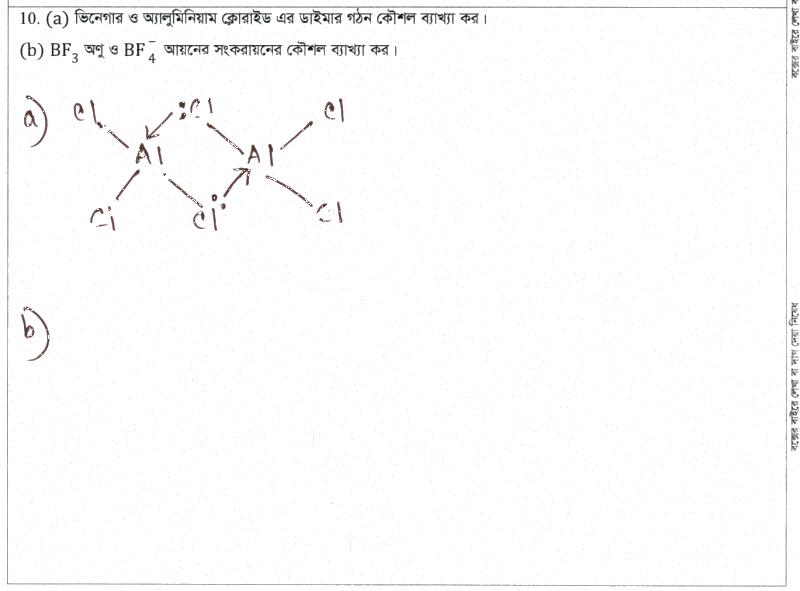 10. (a) ভিনেগার ও অ্যালুমিনিয়াম ক্লোরাইড এর ডাইমার গঠন কৌশল ব্যাখ্যা কর।
(b) BF₃ অণু ও BF₄⁻ আয়নের সংকরায়নের কৌশল ব্যাখ্যা কর।
a) Cl :Cl Cl
Al Al
Cl Cl: Cl
b)
বক্সের বাইরে লেখা বা দাগ দেয়া নিষেধ